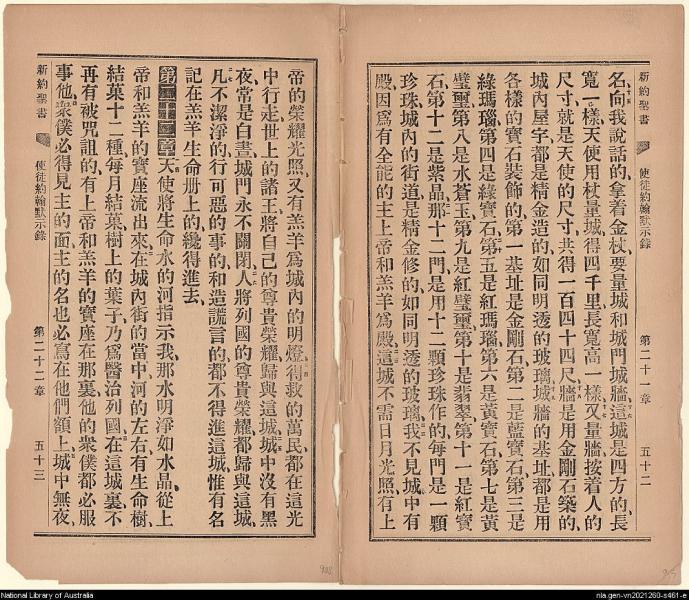 新約聖書 使徒約翰默示錄 第二十一章 五十二
名、向我說話的、拿着金杖、要量城和城門城牆、這城是四方的、長
寬一樣、天使用杖量城、得四千里、長寬高一樣、又量牆、按着人的
尺寸、就是天使的尺寸、共得一百四十四尺、牆是用金剛石築的、
城內屋宇、都是精金造的、如同明透的玻璃、城牆的基址、都是用
各樣的寶石裝飾的、第一基址是金剛石、第二是藍寶石、第三是
綠瑪瑙、第四是綠寶石、第五是紅瑪瑙、第六是黃寶石、第七是黃
璧璽、第八是水蒼玉、第九是紅璧璽、第十是翡翠、第十一是紅寶
石、第十二是紫晶、那十二門是用十二顆珍珠作的、每門是一顆
珍珠、城內的街道是精金修的、如同明透的玻璃、我不見城中有
殿、因爲有全能的主上帝和羔羊爲殿、這城不需日月光照、有上
帝的榮耀光照、又有羔羊爲城內的明燈、得救的萬民、都在這光
中行走、世上的諸王、將自己的尊貴榮耀歸與這城、城中沒有黑
夜、常是白晝、城門永不關閉、人將列國的尊貴榮耀都歸與這城、
凡不潔淨的、行可惡的事的、和造謊言的、都不得進這城、惟有名
記在羔羊生命册上的、纔得進去、
第二十二章 天使將生命水的河指示我、那水明淨如水晶、從上
帝和羔羊的寶座流出來、在城內街的當中、河的左右、有生命樹、
結菓十二種、每月結菓、樹上的葉子、乃爲醫治列國、在這城裏、不
再有被咒詛的、有上帝和羔羊的寶座在那裏、他的衆僕都必服
事他、衆僕必得見主的面、主的名也必寫在他們額上、城中無夜、
新約聖書 使徒約翰默示錄 第二十二章 五十三
National Library of Australia
nla.gen-vn2021260-s461-e